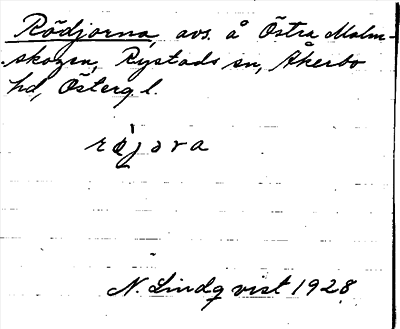 Rödjorna, avs. å Östra Malm-
skogen, Rystads sn, Åkerbo
hd, Östergl.
N. Lindqvist 1928